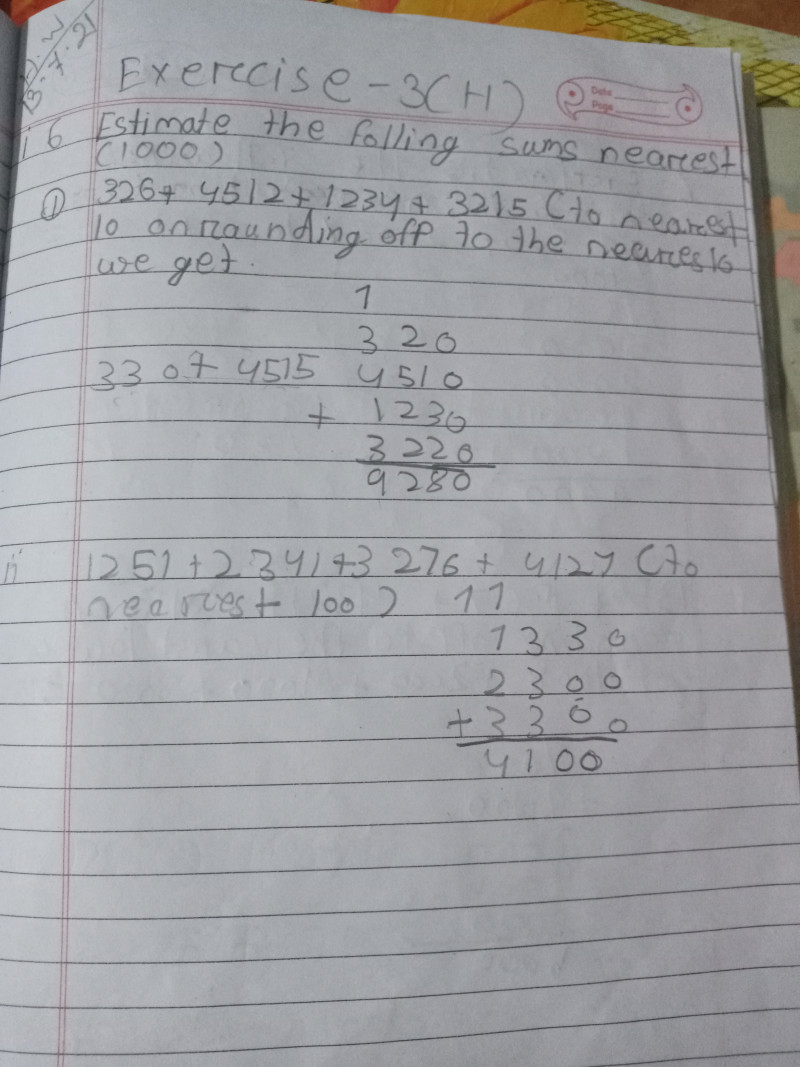 D.W
13.7.21
Exercise-3(H)
Date
Page
i 6 Estimate the folling sums nearest
(1000)
① 326+ 4512+1234+ 3215 (to nearest
10 on raunding off to the nearest 10
we get.
1
320
330+ 4515 4510
+ 1230
3220
9280
ii 1251+2341+3276+ 4127 (to
nearest 100) 11
1330
2300
+3300
4100